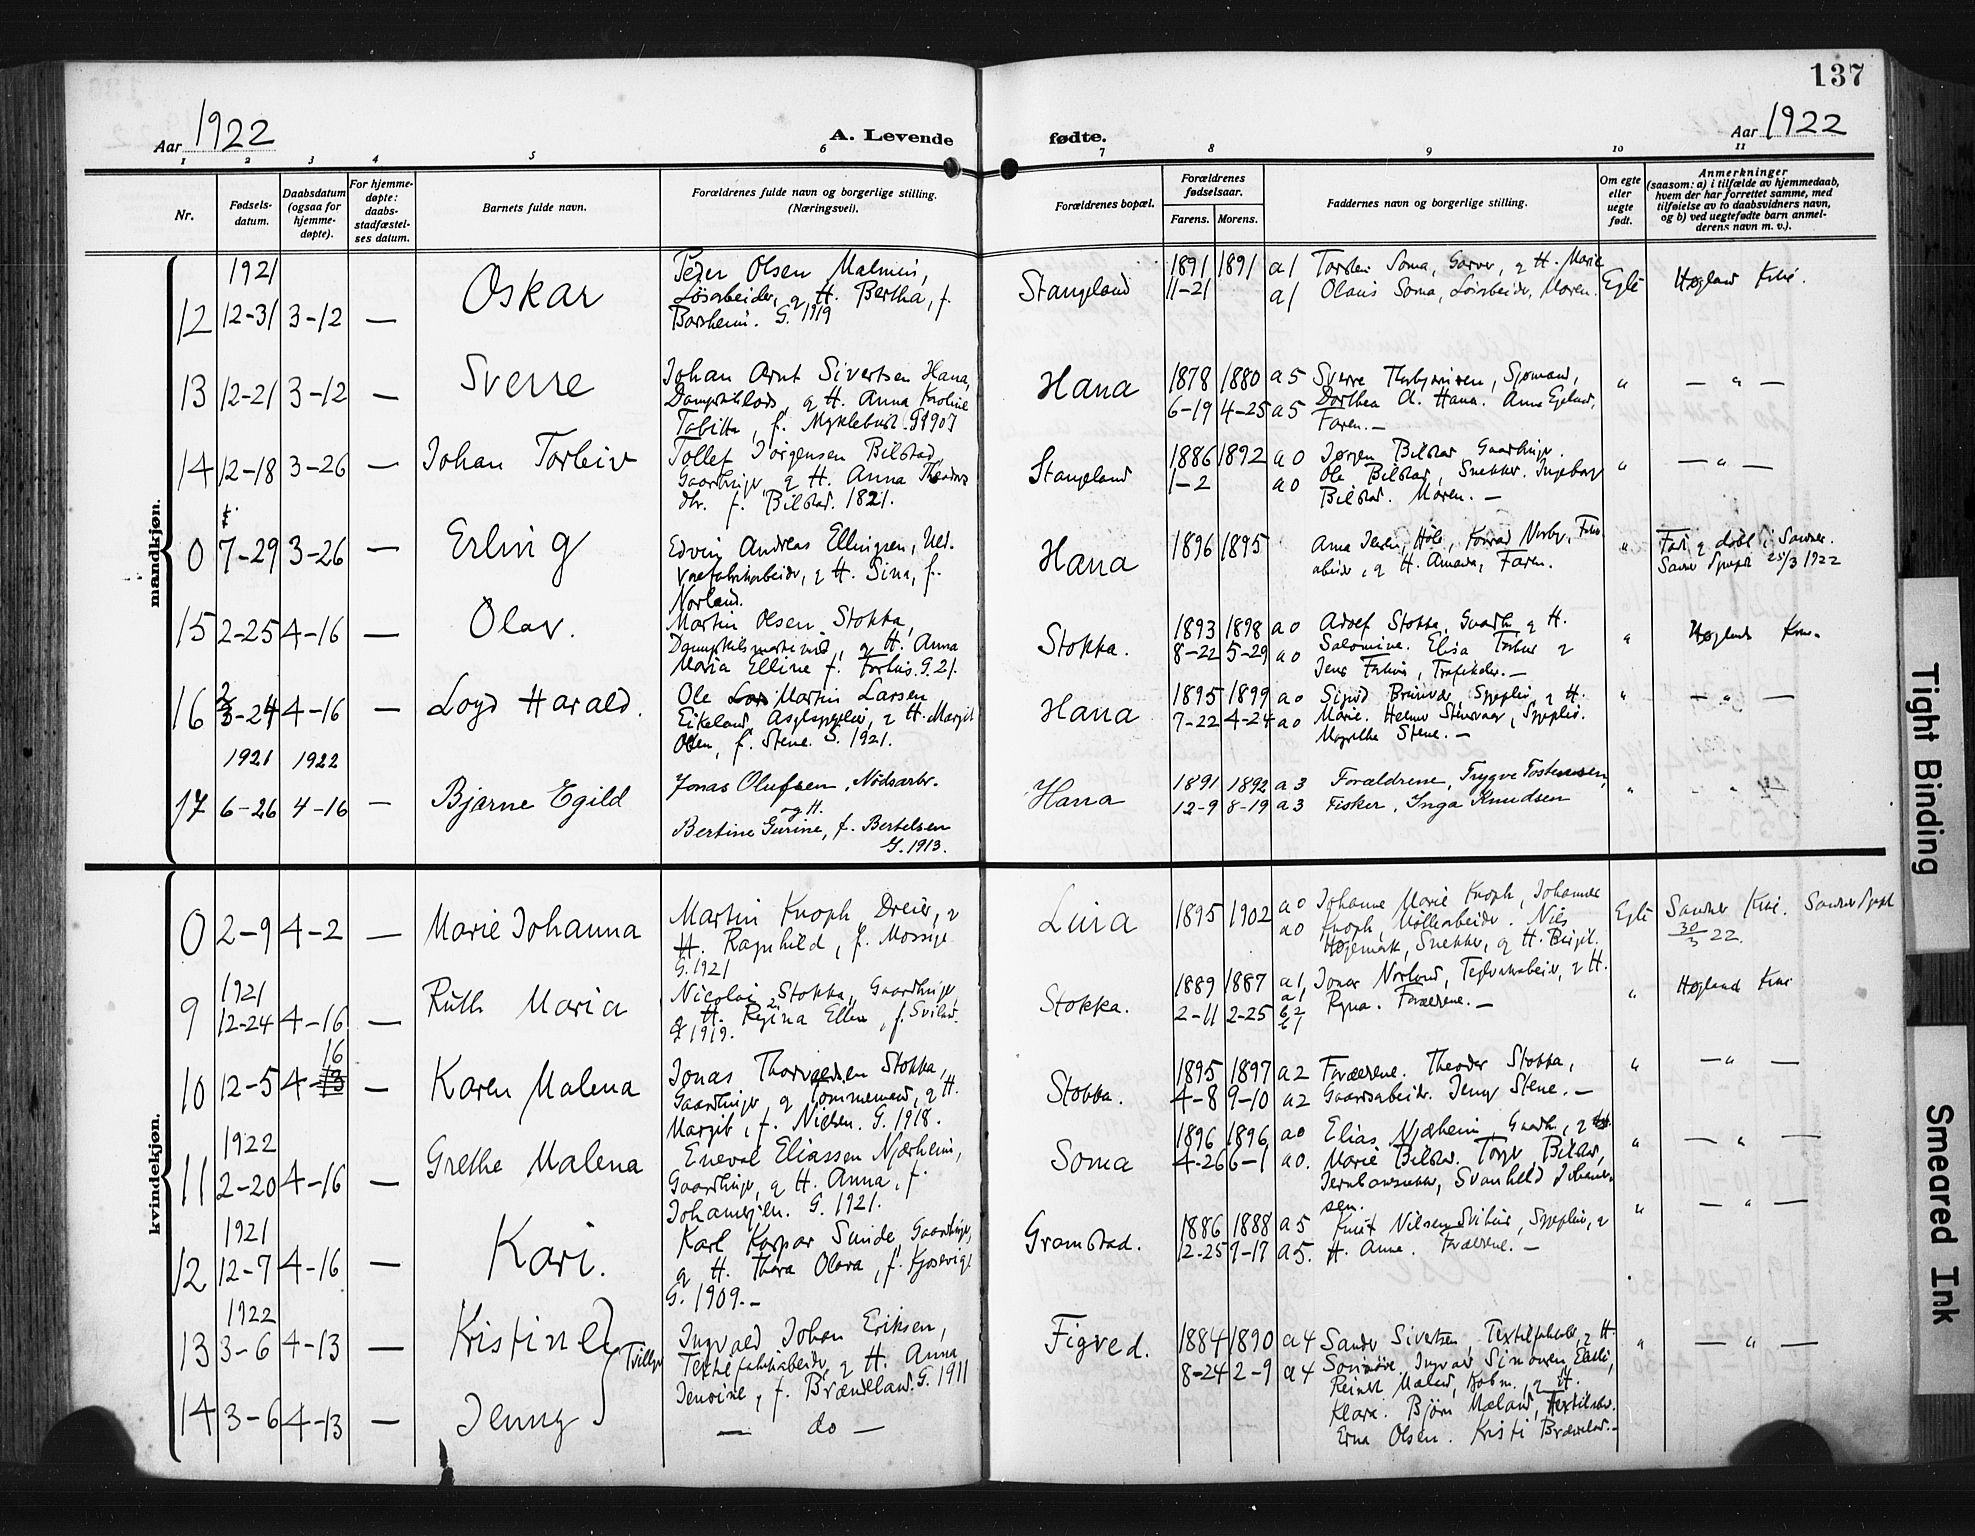 137
Aar 1922
A. Levende
fødte.
Aar 1922
1 2 3 4 5 6 7 8 9 10 11
Nr.
Fødsels-
datum.
Daabsdatum
(ogsaa for
hjemme-
døpte).
For hjemme-
døpte:
daabs-
stadfæstel-
ses datum.
Barnets fulde navn.
Forældrenes fulde navn og borgerlige stilling.
(Næringsvei).
Forældrenes bopæl.
Forældrenes
fødselsaar.
Farens. Morens.
Faddernes navn og borgerlige stilling.
Om egte
eller
uegte
født.
Anmerkninger
(saasom: a) i tilfælde av hjemmedaab,
hvem der har forrettet samme, med
tilføielse av to daabsvidners navn,
og b) ved uegtefødte barn anmel-
derens navn m. v.).
mandkjøn.
1921
12 12-31 3-12 — Oskar
Peder Olsen Malmin,
Løsarbeider, q H. Bertha, f.
Borsheim. G. 1919
Stangeland
1891 1891 a1 Torsten Soma, Garver, q H. Marie
11-21 a1 Olaus Soma, Løsarbeider, Moren.
Egte
Høgland Kirke.
13 12-21 3-12 — Sverre
Johan Arnt Sivertsen Hana,
q H. Anna Karoline
Tobitta, f. Myklebust. G 1907
Hana
1878 1880 a5 Sverre Thorbjørnsen, Sjømand,
6-19 4-25 a5 Dorthea A. Hana. Anna Egeland,
Faren. —
" — " —
14 12-18 3-26 — Johan Torleiv
Tollef Jørgensen Bilstad,
Gaardbruger q H. Anna Theodors
dtr. f. Bilstad. 1821.
Stangeland
1886 1892 a0 Jørgen Bilstad Gaardbruger.
1-2 a0 Ole Bilstad, Snekker. Ingeborg
Bilstad. Moren. —
" — " —
0 7-29 3-26 — Erling
Edvin Andreas Ellingsen,
q H. Sina, f.
Norland.
Hana
1896 1895
Konrad Norby,
q H. Amanda, Faren.
" Født q døbt i Sandnes.
25/3 1922
15 2-25 4-16 — Olav.
Martin Olsen Stokka,
q H. Anna
Maria Elline f. Forhus. G. 21.
Stokka.
1893 1898 a0 Adolf Stokka, Gaardbr. q H.
8-22 5-29 a0 Salomine. Elisa Forhus q
Jens Forhus,
" Høgland Kirke.
16 2-24 4-16 — Loyd Harald.
Ole Martin Larsen
Eikeland, Asylspleier, q H. Margit
Olsen, f. Stene. G. 1921.
Hana
1895 1899 a0 Sigurd
7-22 4-24 a0 Marie.
Stene. —
" — " —
1921 1922
17 6-26 4-16 — Bjarne Egild
Jonas Olufsen, Nødsarbr.
og H.
Bertine Gurine, f. Bertelsen
G. 1913.
Hana
1891 1892 a3 Forældrene, Trygve Tostensen,
12-9 8-19 a3 Fisker, Inga Knudsen
" "
kvindekjøn.
0 2-9 4-2 — Marie Johanna
Martin Knoph Dreier, q
H. Ragnhild, f. Mossige
G. 1921
Lura
1895 1902 a0 Johanne Marie Knoph, Johannes
a0 Knoph, Møllearbeider. Nils
Høgemark, Snekker, q H. Birgit.
Egte
Sandnes Kirke.
30/3 22.
1921
9 12-24 4-16 — Ruth Maria
Nicolai Stokka, Gaardbruger,
q H. Regina Ellen, f. Sviland.
G 1919.
Stokka.
1889 1887 a1, Jonas Norland, q H.
2-11 2-25 Forældrene. —
" Høgland Kirke
16
10 12-5 4-13 — Karen Malena
Jonas Thorvaldsen Stokka,
Gaardbruger q Tømmermand, q H.
Margit, f. Nielsen. G. 1918.
Stokka.
1895 1897 a2 Forældrene. Theodor Stokka,
4-8 9-10 a2 Gaardsarbeider. Jenny Stene. —
" — " —
1922
11 2-20 4-16 — Grethe Malena
Enevald Eliassen Njærheim,
Gaardbruger, q H. Anna, f.
Johannesen. G. 1921.
Soma
1896 1896 a0 Elias Njærheim, Gaardbr., q
4-26 6-1 a0. Marie Bilstad. Torger Bilstad,
Svanhild Johannes-
sen.
" — " —
1921
12 12-7 4-16 — Kari.
Karl Kaspar Sunde Gaardbruger,
q H. Thora Olava, f. Kjosavig
G. 1909. —
Gramstad.
1886 1888 a5 Knut Nilsen q
12-25 9-17 a5. H. Anna. Forældrene. —
" — " —
1922
13 3-6 4-13 — Kristine
Tvillinger
Ingvald Johan Eriksen,
Textilfabrikarbeider, q H. Anna
f. Brændeland. G. 1911
Figved.
1884 1890 a4 Sander Sivertsen, q H.
8-24 2-9 a4 Ingvald Simonsen
Reinert Mæland, q H.
Klara. Bjørn Mæland,
Erna Olsen. Kristi Brændeland. —
" — " —
14 3-6 4-13 — Jenny
— do —
Tight Binding
Smeared Ink